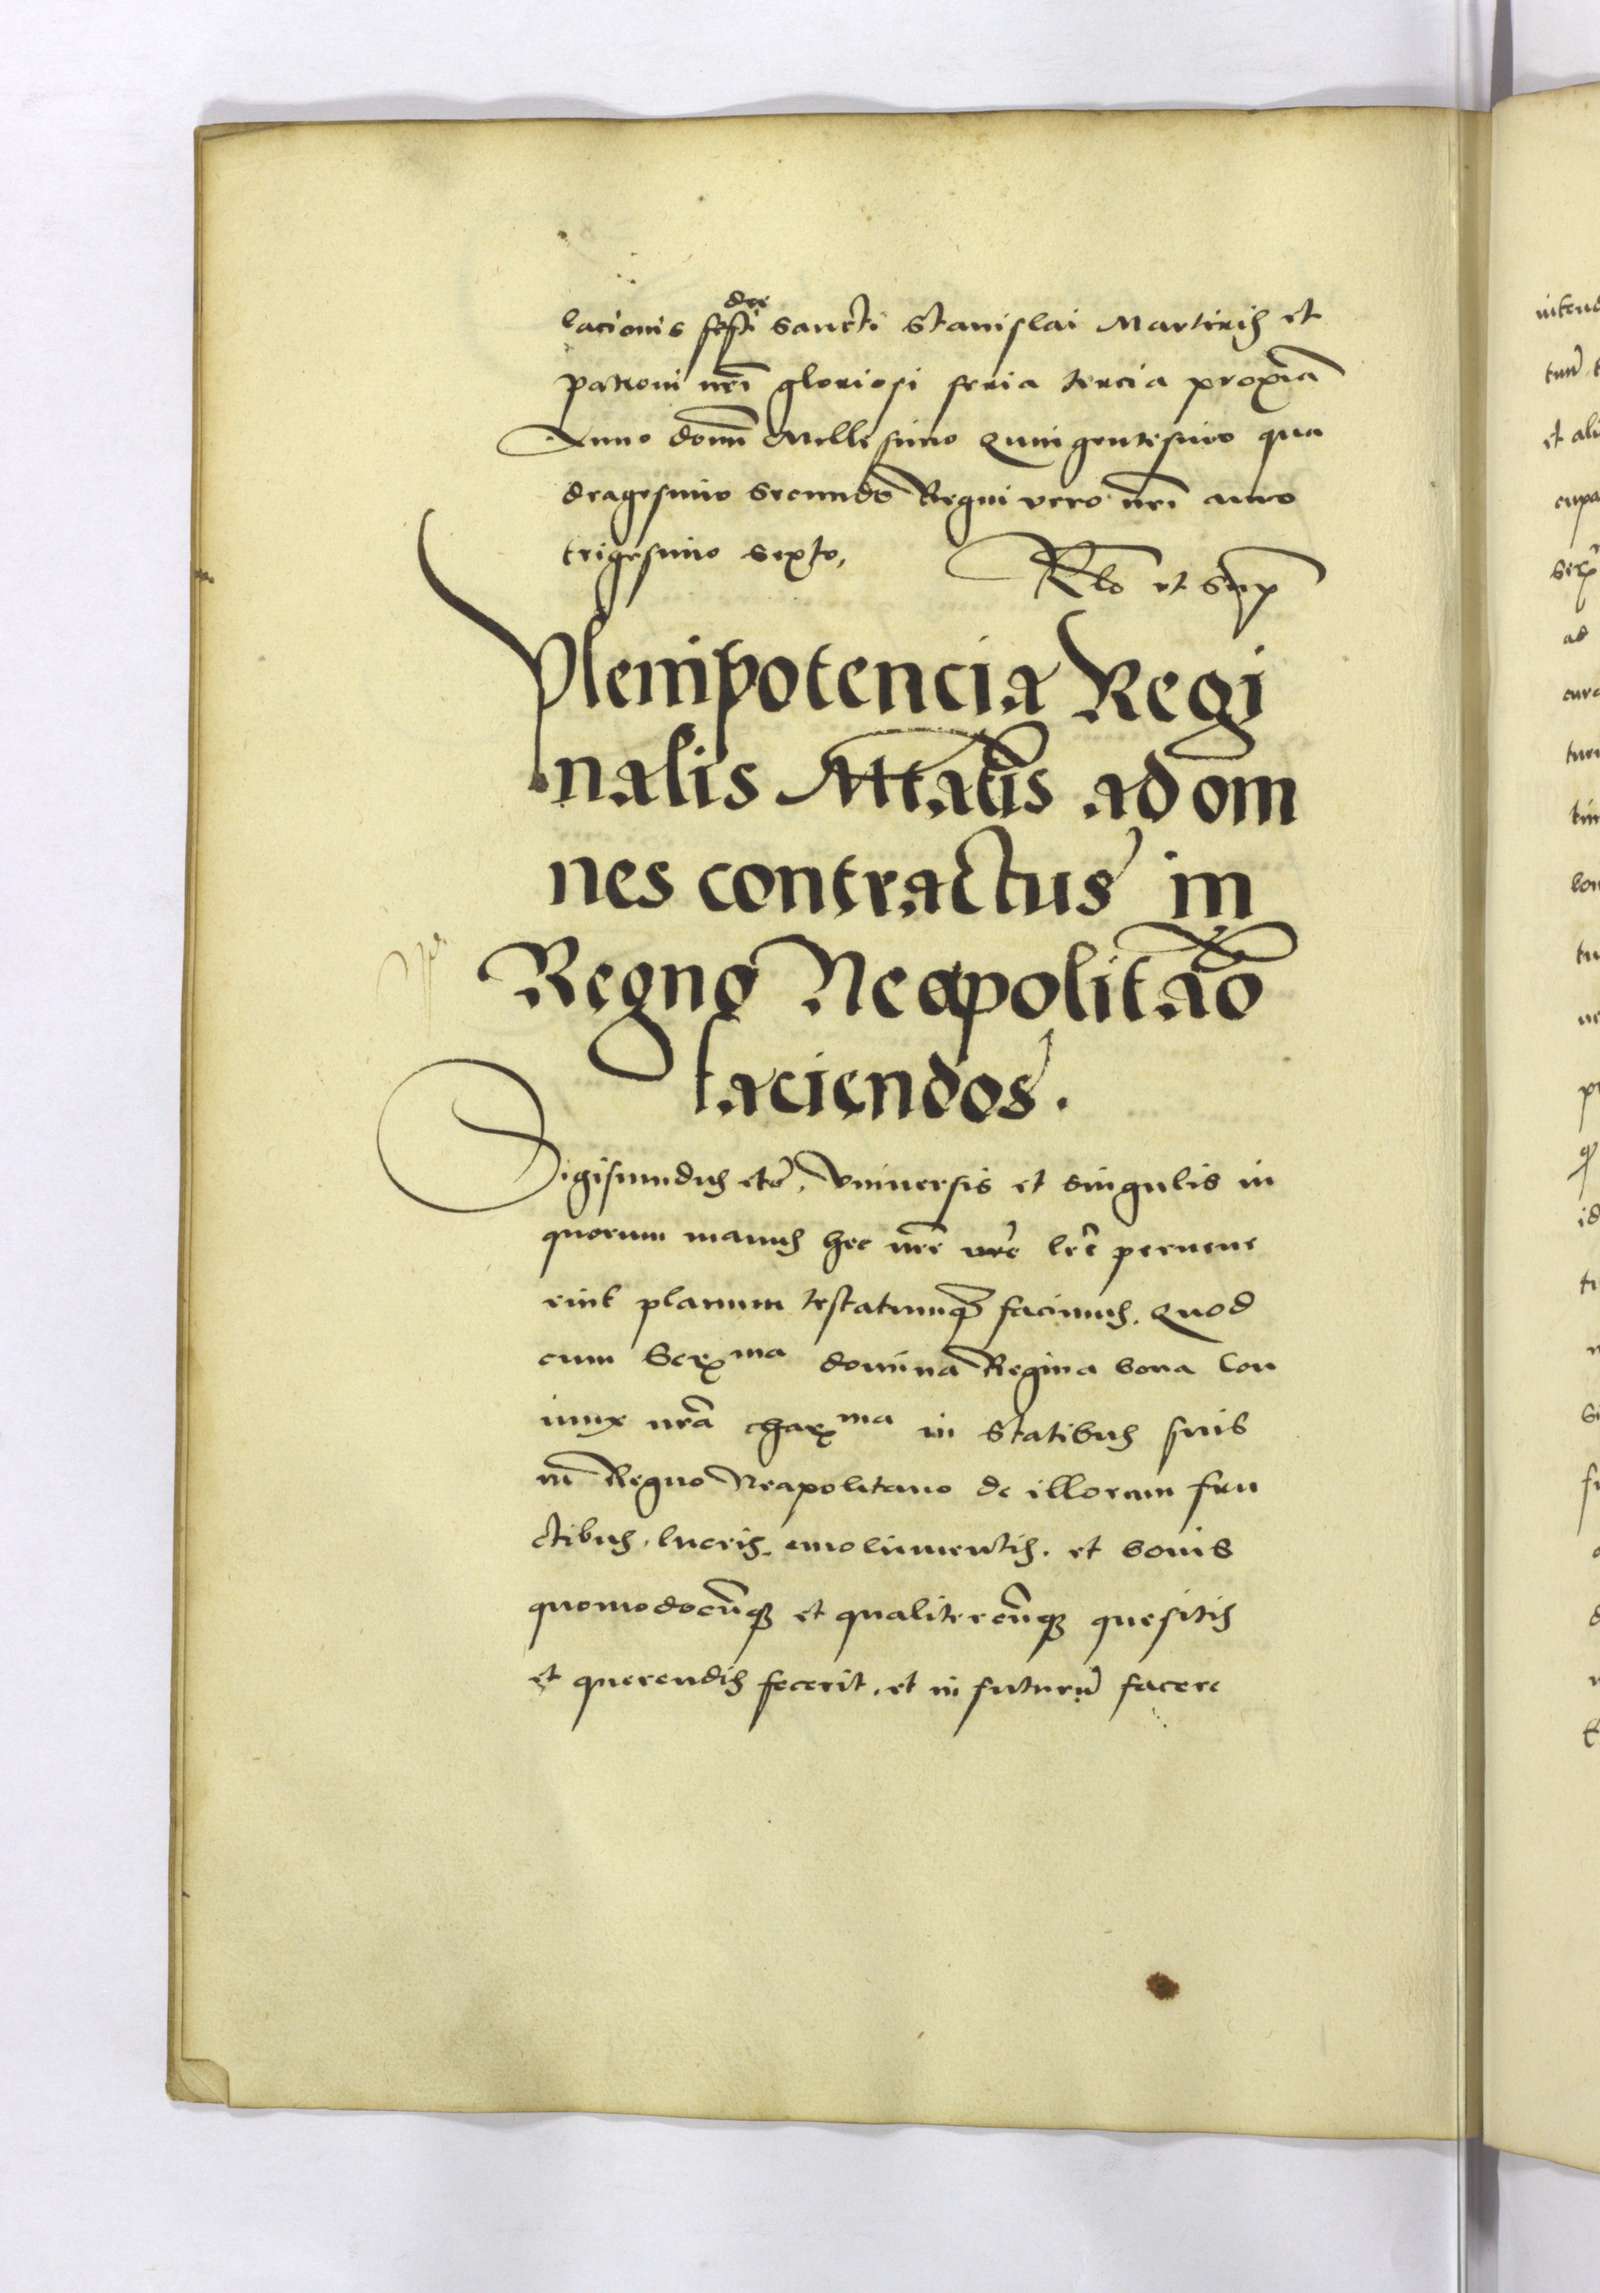 die
lacionis festi sancti Stanislai Martiris et
patroni nrĩ gloriosi feria tercia proxĩa
Anno domĩ Millesimo Quingentesimo qua
dragesimo secundo Regni vero nrĩ anno
trigesimo sexto,
Rłō ut supͣ
Plenipotencia Regi
nalis Mtatis ad om
nes contractus in
Regno Neapolitão
faciendos.
Sigismundus etc̃. Vniuersis et singulis in
quorum manus hec nr̃e lr̃e peruene
rint planum testatumq̃ facimus. Quod
cum Serma domina Regina bona Con
iunx nrã charma in Statibus suis
in Regno Neapolitano de illorum fru
ctibus. lucris. emolimentis. et bonis
quomodocũq̃ et qualitercũq̃ quesitis
et querendis fecerit. et in futurũ facere